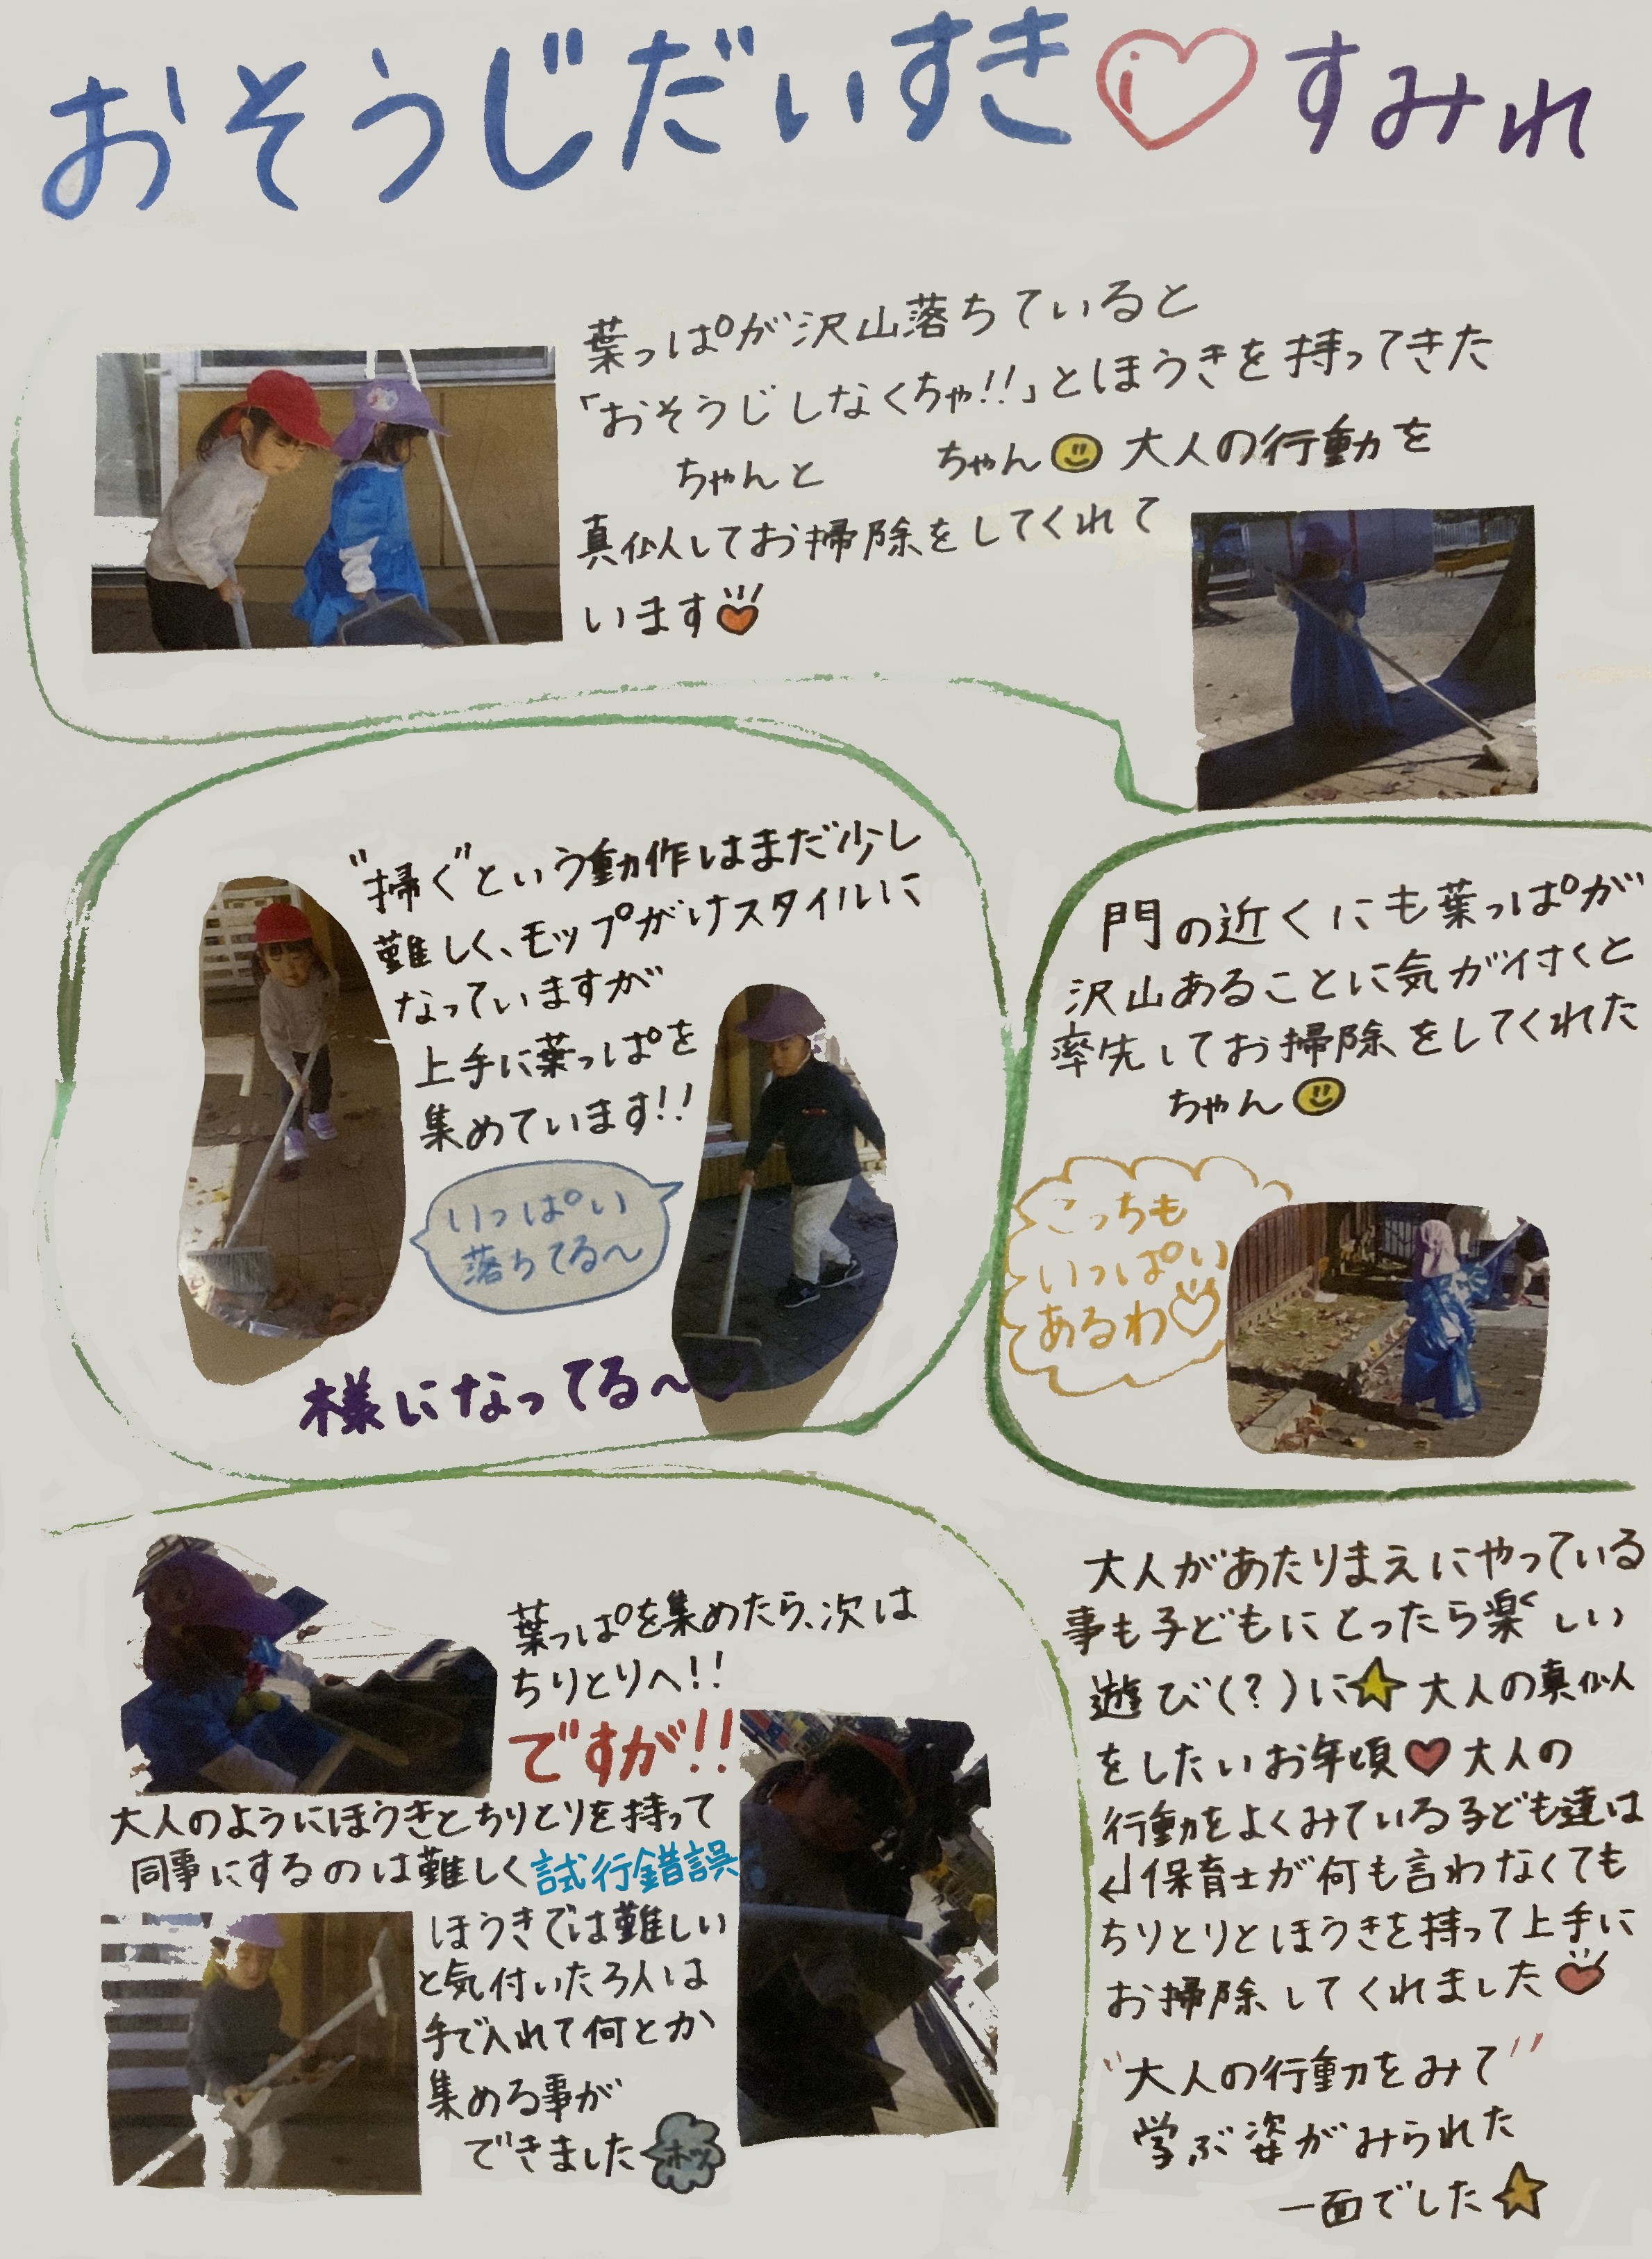 おそうじだいすき♡すみれ
葉っぱが沢山落ちていると
「おそうじしなくちゃ!!」とほうきを持ってきた
ちゃんと ちゃん 大人の行動を
真似してお掃除をしてくれて
います
"掃く"という動作はまだ少し
難しく、モップがけスタイルに
なっていますが
上手に葉っぱを
集めています!!
いっぱい
落ちてる〜
様になってる〜
門の近くにも葉っぱが
沢山あることに気が付くと
率先してお掃除をしてくれた
ちゃん
こっちも
いっぱい
あるわ♡
葉っぱを集めたら、次は
ちりとりへ!!
ですが!!
大人のようにほうきとちりとりを持って
同事にするのは難しく試行錯誤
ほうきでは難しい
と気付いた3人は
手で入れて何とか
集める事が
できました
ホッ
大人があたりまえにやっている
事も子どもにとったら楽しい
遊び(?)に☆大人の真似
をしたいお年頃♥大人の
行動をよくみている子ども達は
保育士が何も言わなくても
ちりとりとほうきを持って上手に
お掃除してくれました
"大人の行動をみて"
学ぶ姿がみられた
一面でした☆